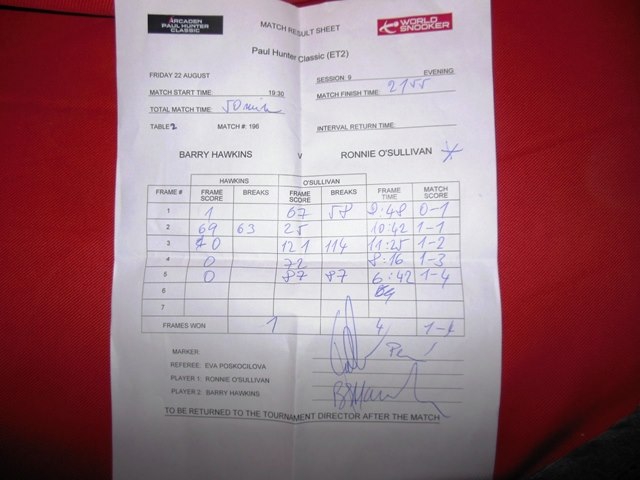 ARCADEN
PAUL HUNTER
CLASSIC
MATCH RESULT SHEET
WORLD
SNOOKER
Paul Hunter Classic (ET2)
FRIDAY 22 AUGUST
SESSION: 9 EVENING
MATCH START TIME: 19:30
MATCH FINISH TIME: 2155
TOTAL MATCH TIME: 50 min
TABLE 2 MATCH #: 196
INTERVAL RETURN TIME:
BARRY HAWKINS V RONNIE O'SULLIVAN
HAWKINS O'SULLIVAN
FRAME # FRAME SCORE BREAKS FRAME SCORE BREAKS FRAME TIME MATCH SCORE
1 1 67 58 9:48 0-1
2 69 63 25 10:42 1-1
3 0 121 114 11:25 1-2
4 0 72 8:16 1-3
5 0 87 87 6:42 1-4
6
7
FRAMES WON 1 4 1-4
MARKER:
REFEREE: EVA POSKOCILOVA
PLAYER 1: RONNIE O'SULLIVAN
PLAYER 2: BARRY HAWKINS
TO BE RETURNED TO THE TOURNAMENT DIRECTOR AFTER THE MATCH